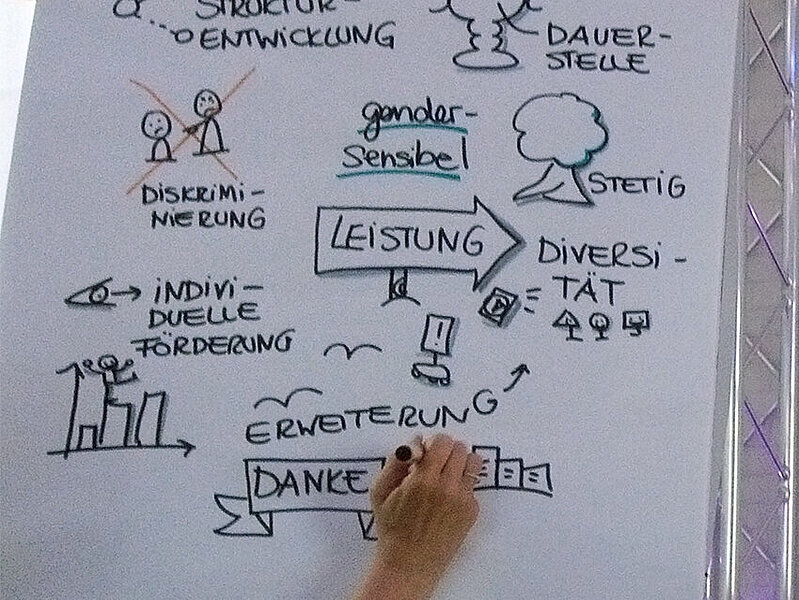 STRUKTUR-
ENTWICKLUNG
DAUER-
STELLE
gender-
sensibel
STETIG
DISKRIMI-
NIERUNG
LEISTUNG
DIVERSI-
TÄT
INDIVI-
DUELLE
FÖRDERUNG
!
ERWEITERUNG
DANKE